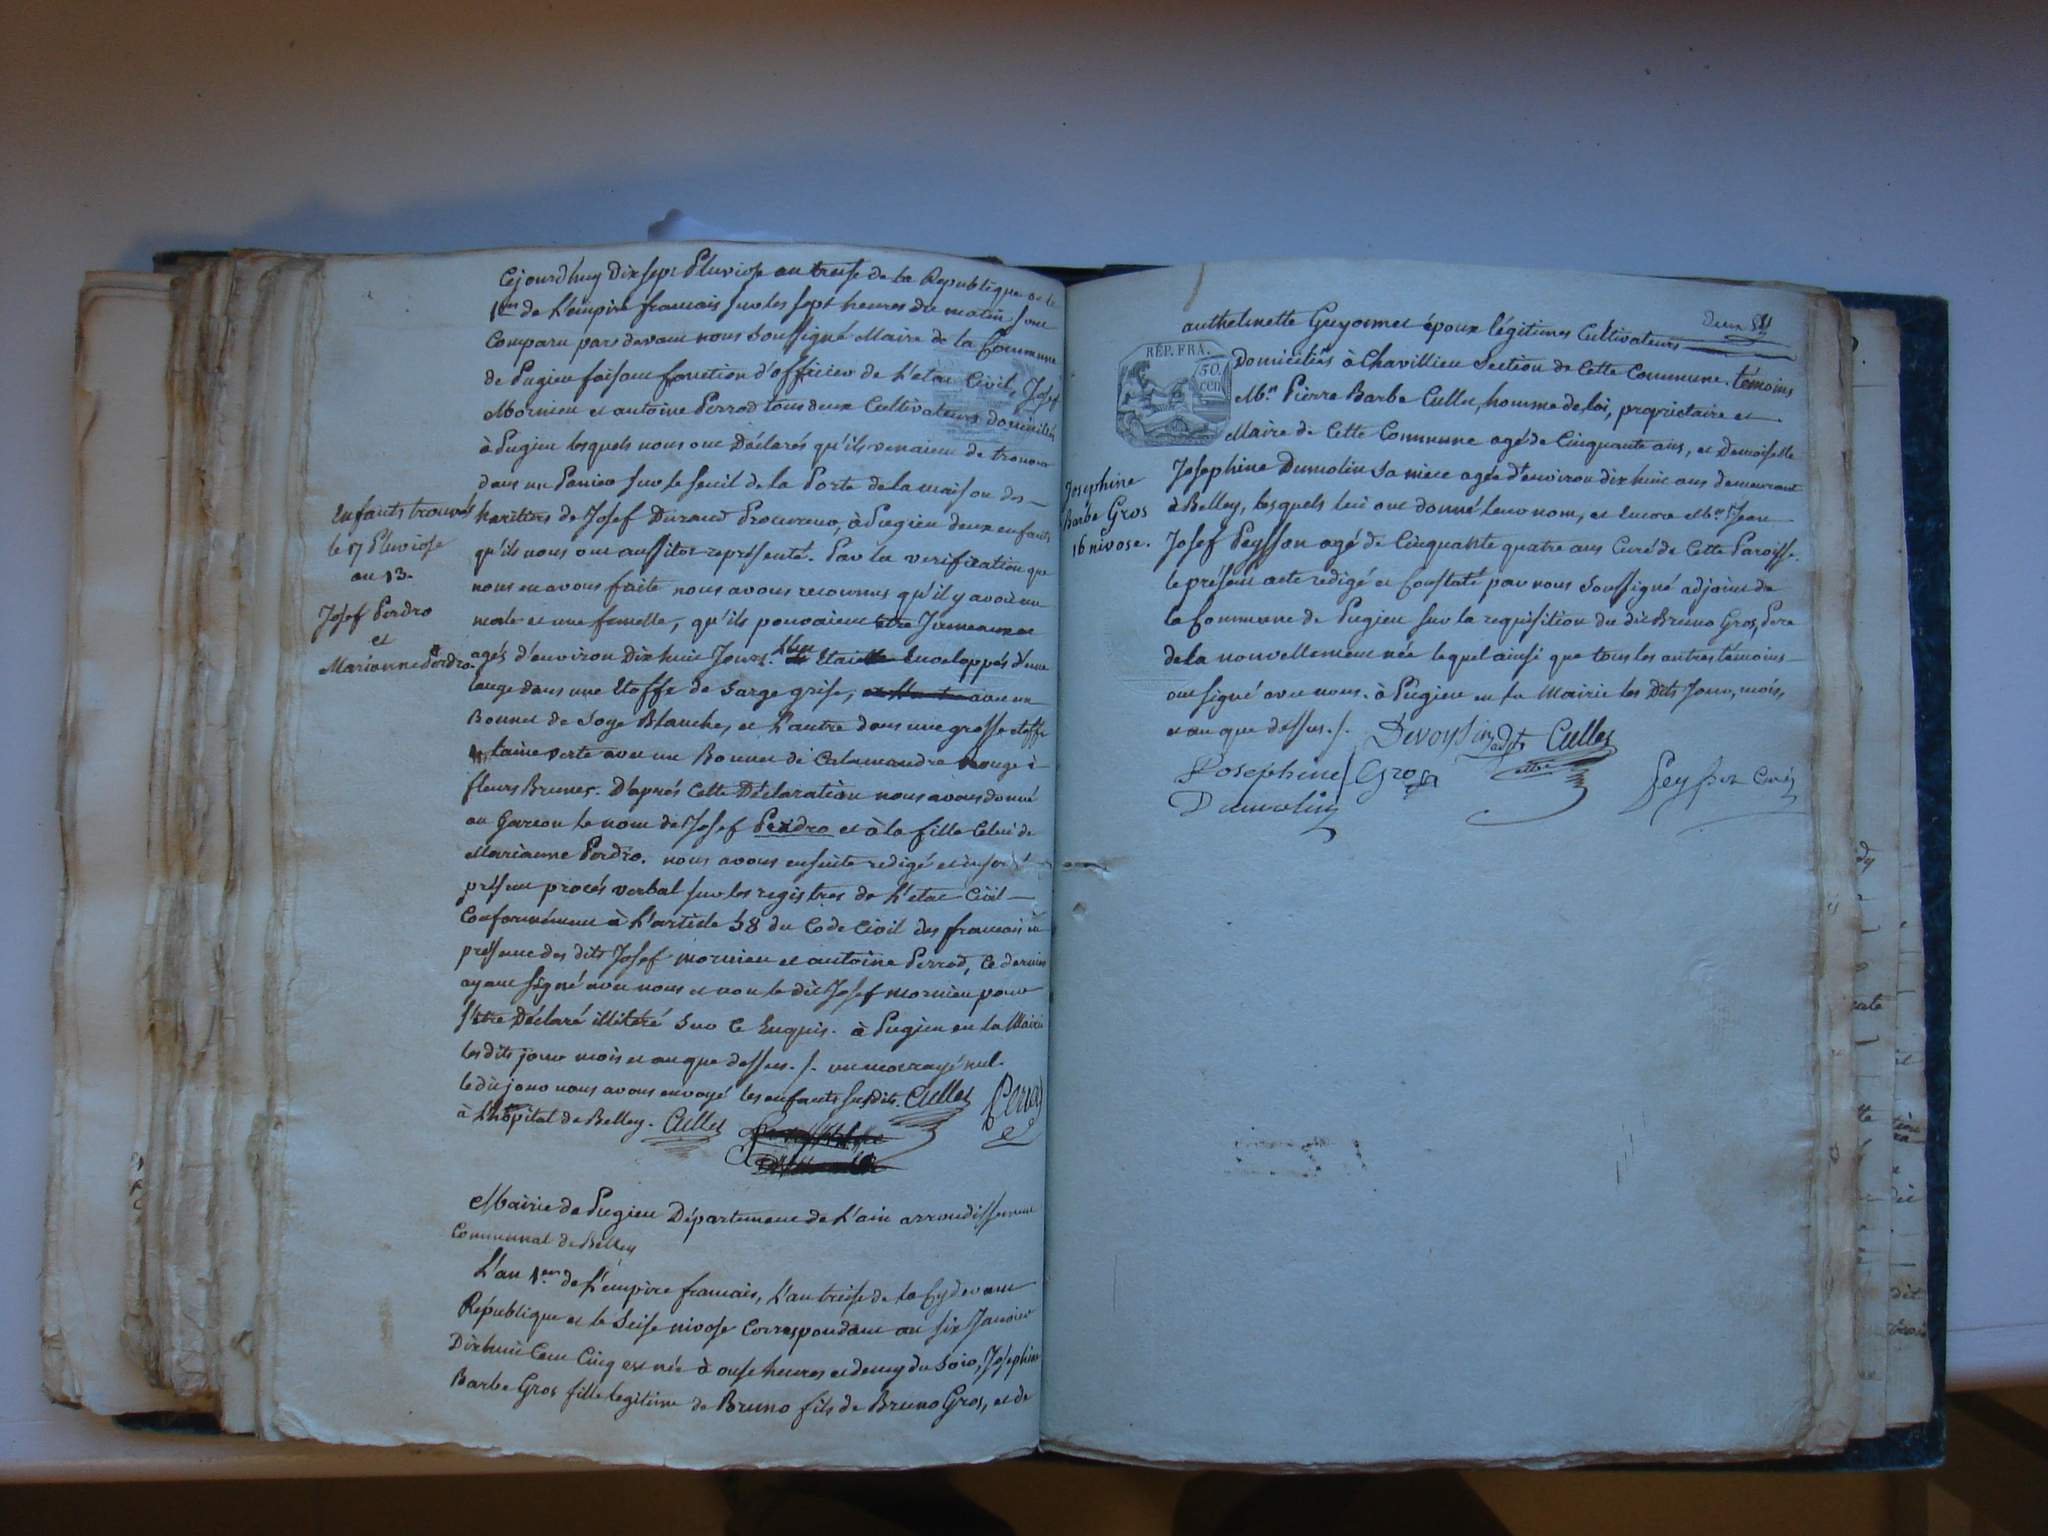 Cejourd'huy Dix sept Pluviose an treise de la Republique et le
1er de L'empire francais sur les sept heures du matin sont
Comparu pardevant nous soussigné Maire de la Commune
de Pugieu faisant fonction d'officier de L'etat Civil, Josef
Mornieu et antoine Perrod tous deux Cultivateurs domiciliés
à Pugieu lesquels nous ont Déclarés qu'ils venaient de trouver
dans un Panier sur le seuil de la Porte de la maison des
Enfants trouvés
le 17 Pluviose
an 13.
Josef Perdro
et
Marianne Perdro.
heritiers de Josef Durand Procureur, à Pugieu deux enfants
qu'ils nous ont aussitot représenté. Par la verification que
nous en avons faite nous avons reconnus qu'il y avoit un
male et une femelle, qu'ils pouvaient etre Jumeaux et
agés d'environ Dix huit Jours. L'un Etait Enveloppés d'une
lange dans une Etoffe de Sarge grise, avec un
Bonnet de Soye Blanche, et L'autre dans une grosse etoffe
laine verte avec un Bonnet de Calamandre Rouge à
fleurs Brunes. D'aprés Cette Déclaration nous avons donné
au Garcon le nom de Josef Perdro et à la fille Celui de
Marianne Perdro. nous avons ensuite redigé et inseré
présent procés verbal sur les registres de L'etat Civil
Conformément à L'article 58 du Code Civil des francais en
présence des dits Josef mornieu et antoine Perrod, Ce dernier
ayant signé avec nous et non le dit Josef mornieu pour
s'etre Déclaré illiteré Sur Ce Enquis. à Pugieu en la Mairie
les dits jour mois et an que dessus. /. un mot rayé nul.
le dit jour nous avons envoyé les enfants susdits. Cullet Perrod
à L'hôpital de Belley. Cullet
Mairie de Pugieu Département de L'ain arrondissement
Communal de Belley
L'an 1er de L'émpire francais, L'an treise de la Cydevant
République et le Seise nivose Correspondant au six Janvier
Dixhuit Cent Cinq est née à onse heures et demy du Soir, Josephine
Barbe Gros fille legitime de Bruno fils de Bruno Gros, et de
deux
anthelmette Guyonnet époux légitimes Cultivateurs
RÉP. FRA.
50.
cen
Domiciliés à Chavillieu Section de Cette Commune. témoins
Mr. Pierre Barbe Cullet, homme de loi, propriétaire et
Maire de Cette Commune agé de Cinquante ans, et Demoiselle
Josephine
Barbe Gros
16 nivose.
Josephine Dumolin sa niece agée d'environ dix huit ans demeurant
à Belley, lesquels lui ont donné leur nom, et encore Mr. Jean
Josef Peysson agé de Cinquante quatre ans Curé de Cette Paroisse.
le présent acte redigé et Constaté par nous Soussigné adjoint de
la Commune de Pugieu sur la requisition du dit Bruno Gros, Pere
de la nouvellement née lequel ainsi que tous les autres témoins
ont signé avec nous. à Pugieu en la Mairie les Dits Jour, mois,
et an que dessus. /. Devoysin adjt Cullet
Josephine Gros Peysson Curé
Dumolin